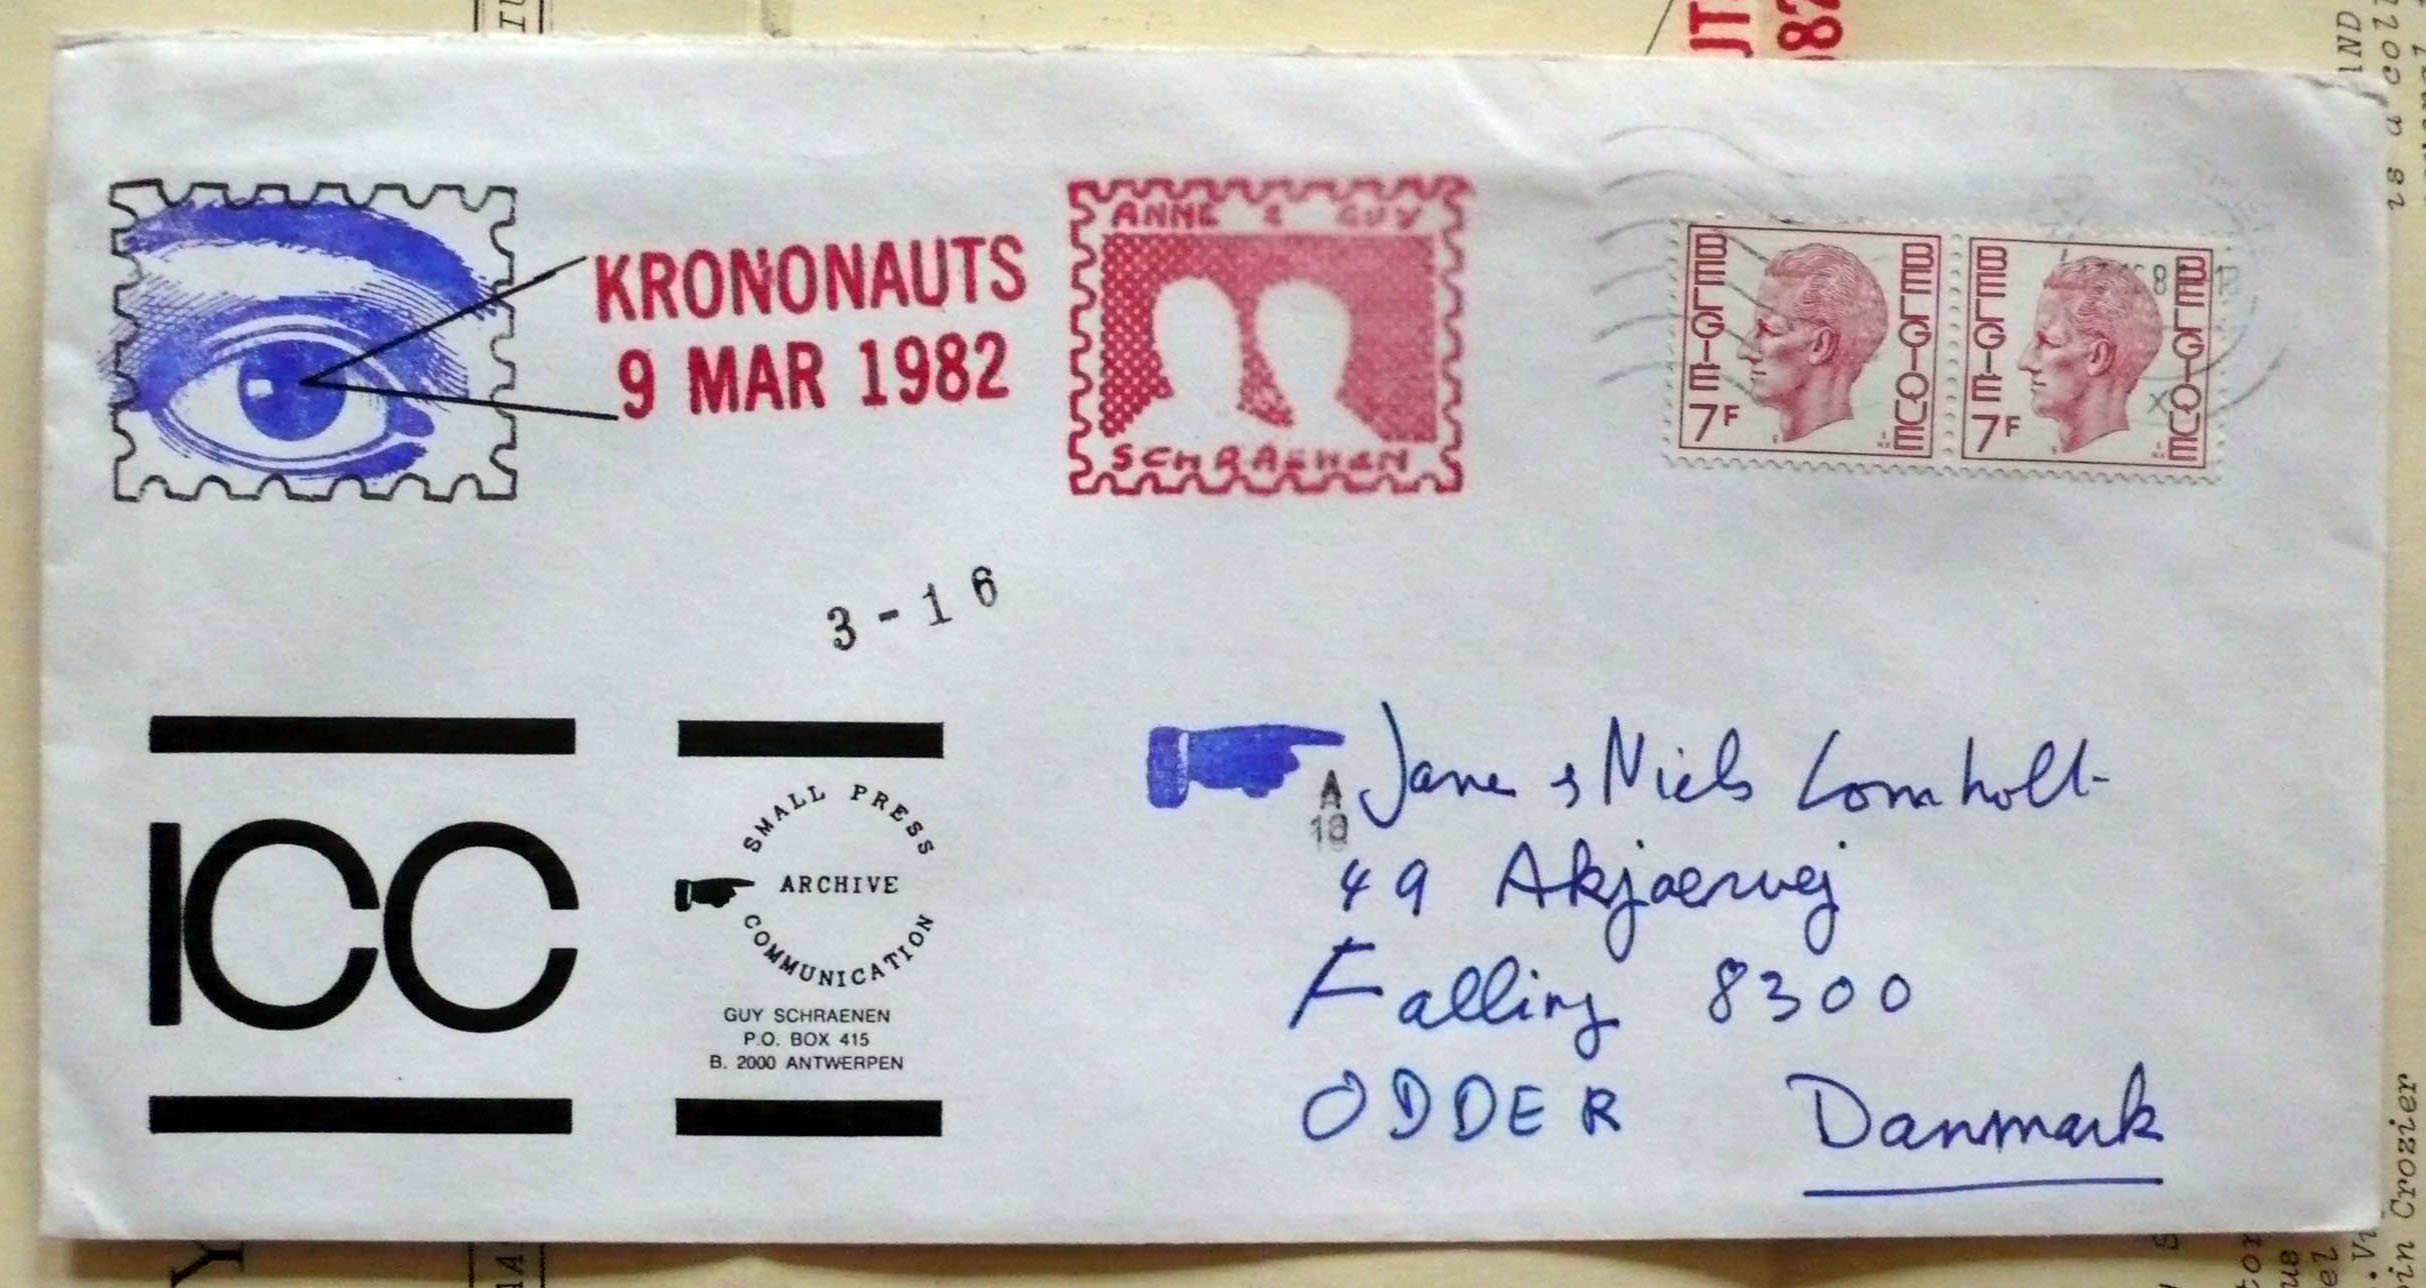 KRONONAUTS
9 MAR 1982
ANNE & GUY
SCHRAENEN
BELGIE
BELGIQUE
7F
BELGIE
BELGIQUE
7F
3-16
ICC
SMALL PRESS
ARCHIVE
COMMUNICATION
GUY SCHRAENEN
P.O. BOX 415
B. 2000 ANTWERPEN
A
Jane & Niels Lomholt
49 Akjaervej
Falling 8300
ODDER Danmark
is a coll
in Crozier